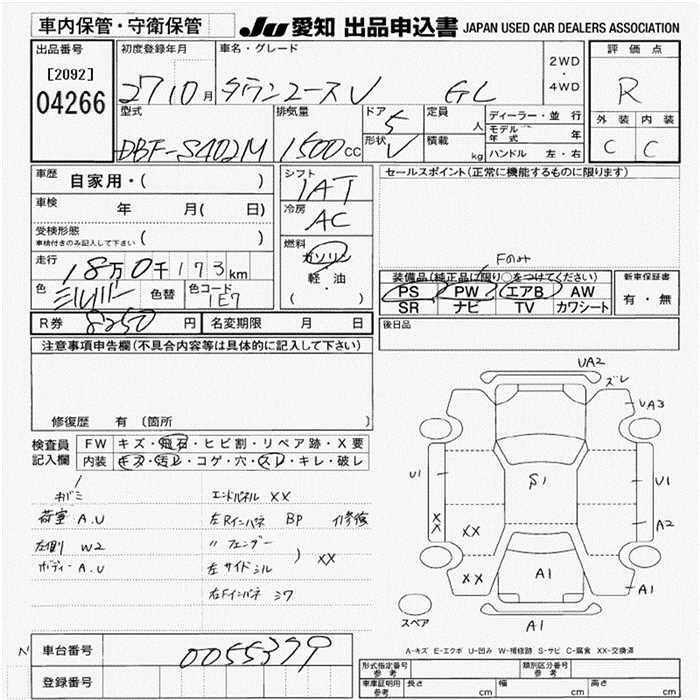 車内保管・守衛保管
JU 愛知 出品申込書 JAPAN USED CAR DEALERS ASSOCIATION
出品番号
[2092]
04266
初度登録年月
27 10月
車名・グレード
タウンエースV GL
2WD
・
4WD
評価点
R
外装 内装
C C
型式
DBF-S402M
排気量
1500cc
ドア
5
形状
V
定員
人
積載
kg
ディーラー・並行
モデル年式 年
ハンドル 左・右
車歴
自家用・( )
車検
年 月( 日)
受検形態
車検付きのみ記入して下さい ( )
走行
18万0千173km
色
シルバー
色替
色コード
1E7
シフト
IAT
冷房
AC
燃料
ガソリン
軽・油
( )
セールスポイント(正常に機能するものに限ります)
Fのみ
装備品(純正品に限り○をつけてください)
PS PW エアB AW
SR ナビ TV カワシート
新車保証書
有・無
後日品
R券 8250円
名変期限 月 日
注意事項申告欄(不具合内容等は具体的に記入して下さい)
修復歴 有 (箇所 )
検査員
記入欄
FW キズ・飛石・ヒビ割・リペア跡・X要
内装 キズ・汚レ・コゲ・穴・スレ・キレ・破レ
キバミ
荷室 A.U
左側 W2
ボディー A.U
エンドパネル XX
左Rインパネ BP 修
〃 フェンダー
左サイドシル ) XX
右Fインパネ シワ
UA2
ズレ
UA3
U1
S1
U1
XX
XX
A2
XX
A1
A1
A1
スペア
A-キズ E-エクボ U-凹み W-補修跡 S-サビ C-腐食 XX-交換済
N
車台番号
0055399
登録番号
形式指定番号
参考
類別区分番号
参考
車庫証明用
参考
長さ cm
幅 cm
高さ cm